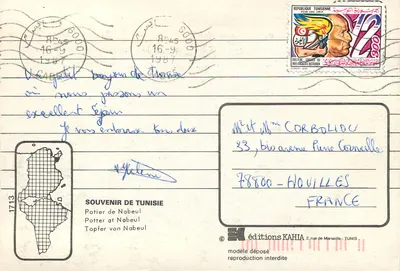 8H45
16-9
1987
REPUBLIQUE TUNISIENNE
Un petit bonjour de Tunisie
où nous passons un
excellent séjour
Je vous embrasse tous deux
Mr et Mme CORBOLIOU
33, bis avenue Pierre Corneille
78800 - HOUILLES
FRANCE
1713
SOUVENIR DE TUNISIE
Potier de Nabeul
Potter at Nabeul
Topfer von Nabeul
© éditions KAHIA 7, rue de Marseille - TUNIS
modèle déposé
reproduction interdite